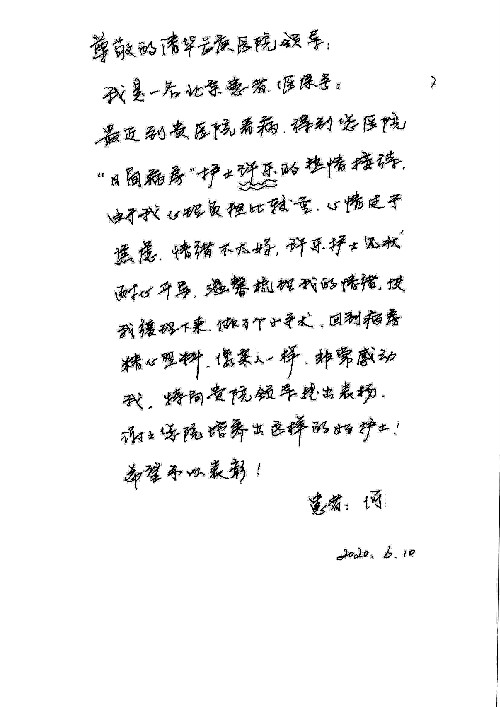 尊敬的清华长庚医院领导：
我是一名北京患者（医保等）。
最近到贵医院看病，得到您医院
“日间病房”护士许乐的热情接待，
由于我心理负担比较重，心情过于
焦虑，情绪不太好，许乐护士见状
耐心开导，温馨梳理我的情绪，使
我缓和下来，做了个小手术，回到病房
精心照料，像家人一样，非常感动
我，特向贵院领导提出表扬，
谢谢您院培养出这样的好护士！
希望予以表彰！
患者：
2020.6.10